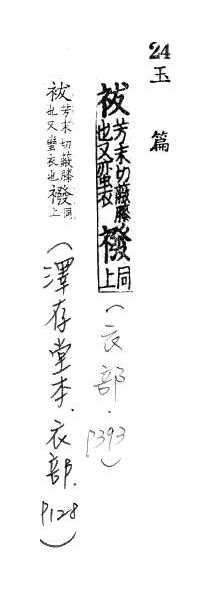 24 玉篇
袚芳末切蔽膝也又蛮衣襏同上(衣部.p393)
袚芳末切蔽膝也又蠻衣也襏同上(澤存堂本.衣部.p128)